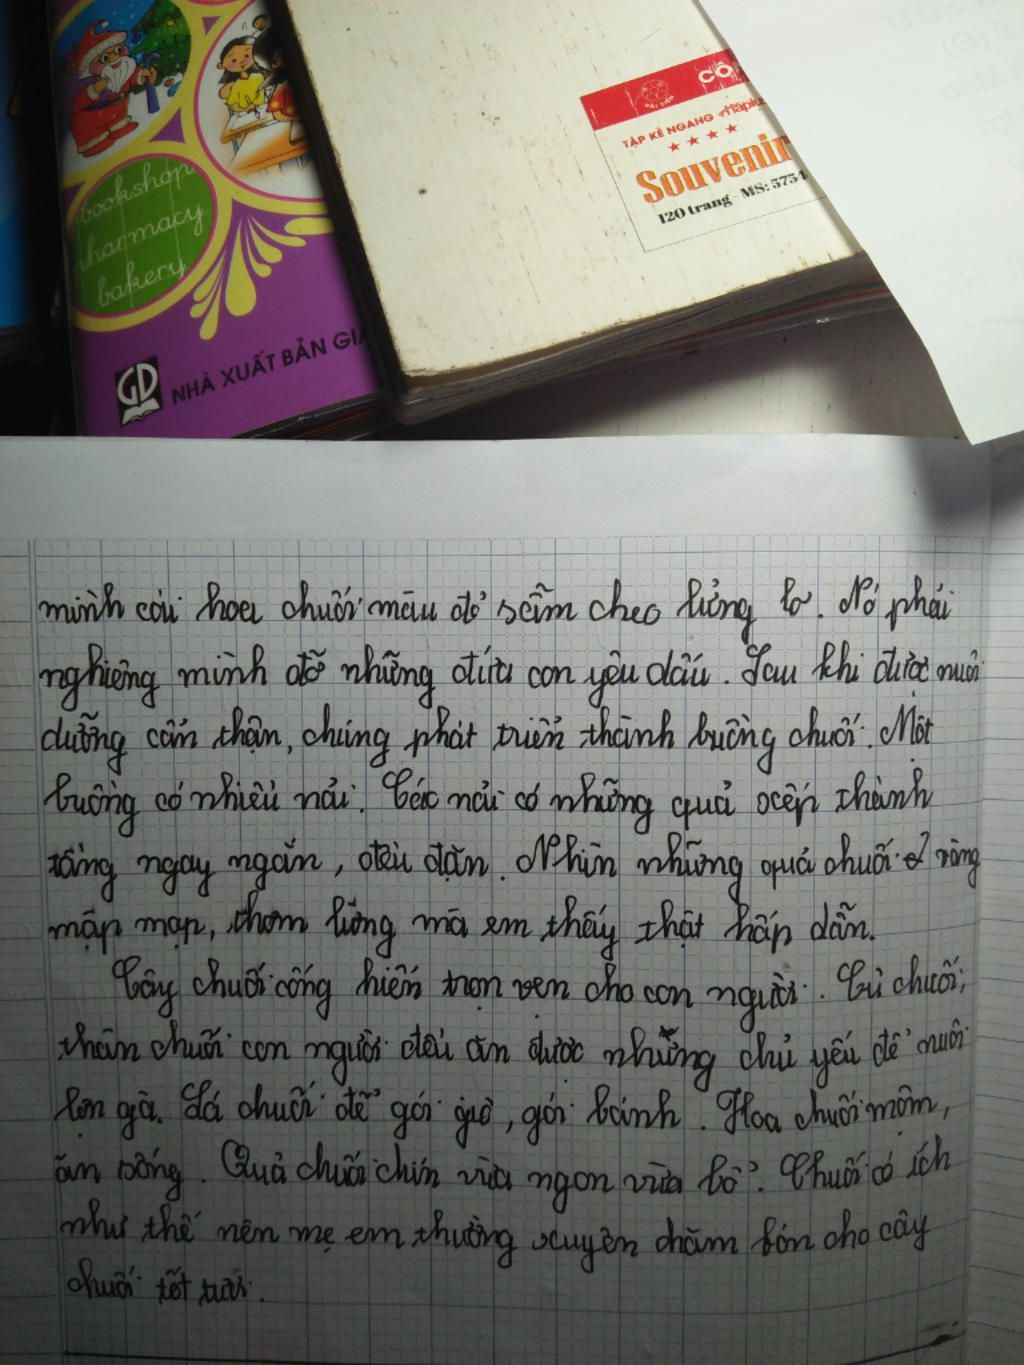 bookshop
pharmacy
bakery
GD
NHÀ XUẤT BẢN GIÁ
HẢI TIẾN
TẬP KẺ NGANG
★★★★
Souvenir
120 trang - MS: 3754
mình cái hoa chuối màu đỏ sẫm cheo lửng lơ. Nó phải
nghiêng mình đỡ những đứa con yêu dấu. Sau khi được nuôi
dưỡng cẩn thận, chúng phát triển thành buồng chuối. Một
buồng có nhiều nải. Các nải có những quả xếp thành
tầng ngay ngắn, đều đặn. Nhìn những quả chuối vàng
mập mạp, thơm lừng mà em thấy thật hấp dẫn.
Cây chuối cống hiến trọn vẹn cho con người. Củ chuối,
thân chuối con người đều ăn được nhưng chủ yếu để nuôi
lợn gà. Lá chuối để gói giò, gói bánh. Hoa chuối mộm,
ăn sống. Quả chuối chín vừa ngon vừa bổ. Chuối có ích
như thế nên mẹ em thường xuyên chăm bón cho cây
chuối tốt tươi.